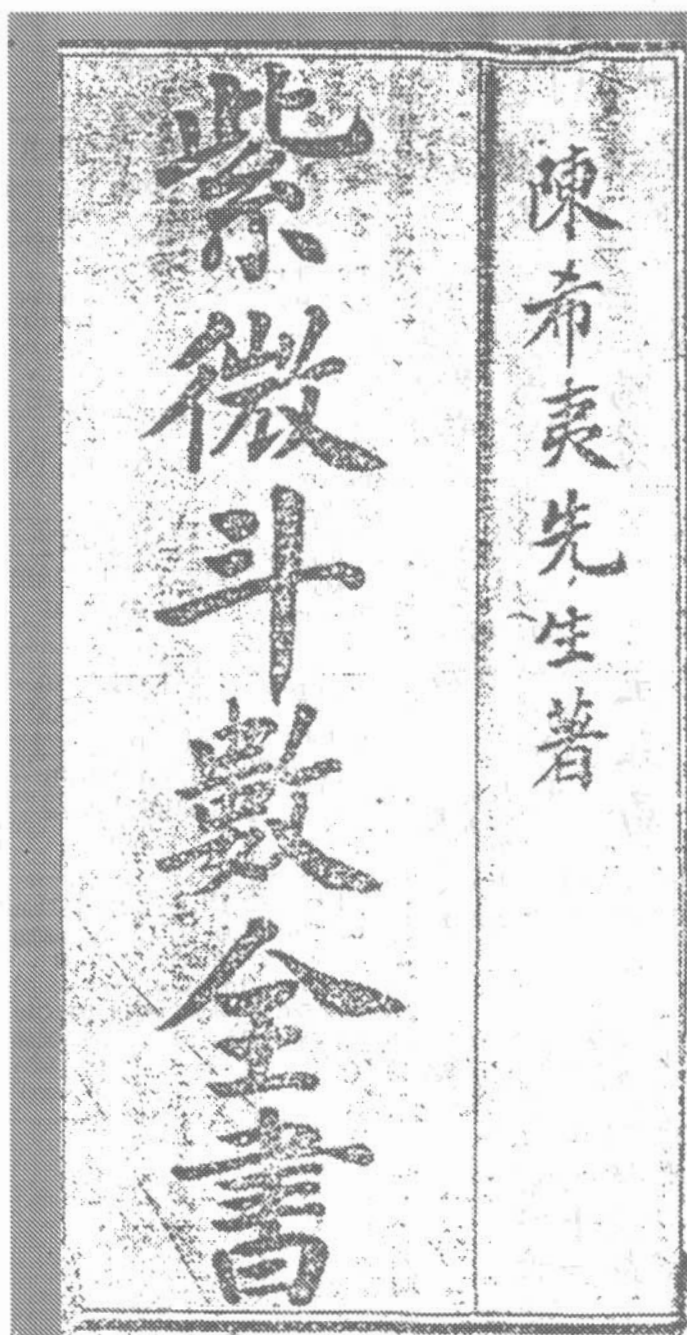 陳希夷先生著
紫微斗數全書